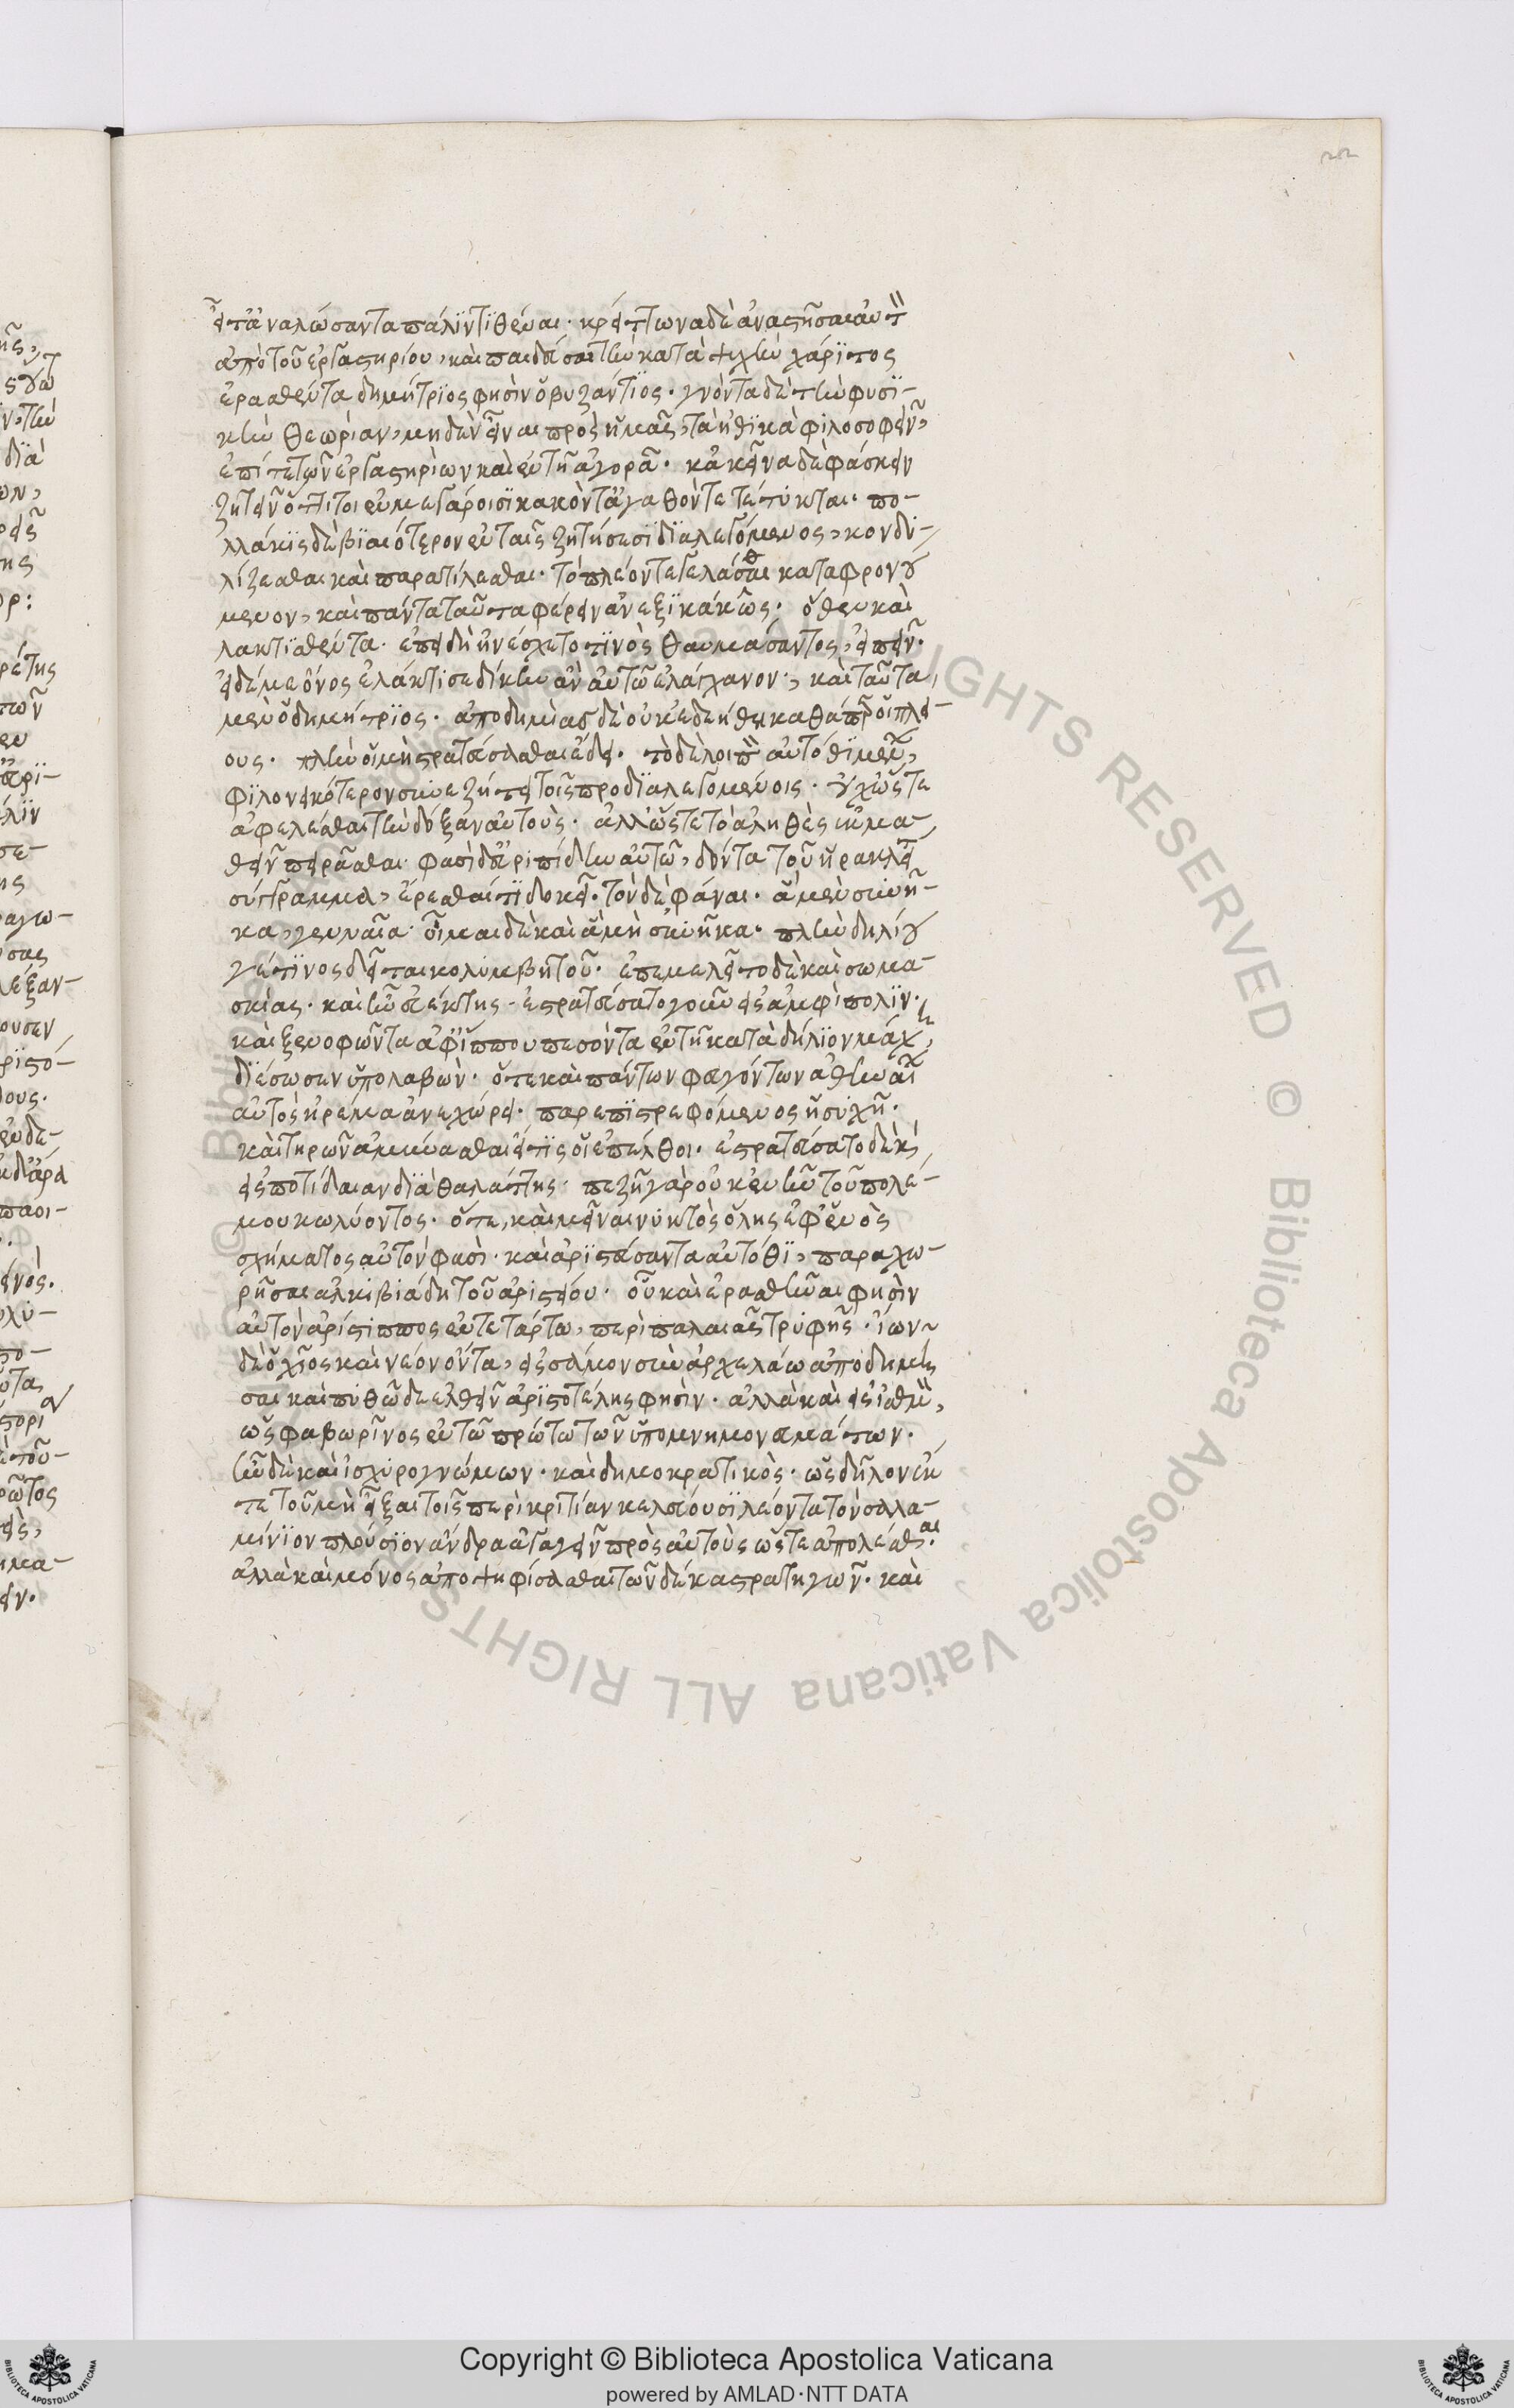 22
εἶτ' ἀναλώσαντα πάλιν τιθέναι· κρίτωνα δὲ ἀναστῆσαι αὐτ
ἀπὸ τοῦ ἐργαστηρίου, καὶ παιδεῦσαι τὴν κατὰ ψυχὴν χάριτος
ἐρασθέντα δημήτριος φησὶν ὁ βυζάντιος· γνόντα δὲ τὴν φυσι-
κὴν θεωρίαν, μηδὲν εἶναι πρὸς ἡμᾶς, τὰ ἠθικὰ φιλοσοφεῖν,
ἐπί τε τῶν ἐργαστηρίων καὶ ἐν τῇ ἀγορᾷ· κἀκεῖνα δὲ φάσκειν
ζητεῖν ὅττι τοι ἐν μεγάροισι κακόν τ' ἀγαθόν τε τέτυκται· πο-
λλάκις δὲ βιαιότερον ἐν ταῖς ζητήσεσι διαλεγόμενος, κονδυ-
λίζεσθαι καὶ παρατίλεσθαι· τὸ πλέον τε γελάσθαι καταφρονού
μενον, καὶ πάντα ταῦτα φέρειν ἀνεξικάκως· ὅθεν καὶ
λακτισθέντα· ἐπειδὴ ἠνέσχετο τινὸς θαυμάσαντος, εἰπεῖν·
εἰ δέ με ὄνος ἐλάκτισε δίκην ἂν αὐτῷ ἐλάγχανον·, καὶ ταῦτα
μὲν ὁ δημήτριος· ἀποδημίας δὲ οὐκ ἐδεήθη καθάπερ οἱ πλεί-
ους· πλὴν οἱ μὴ στρατεύσασθαι ἔδει· τὸ δὲ λοιπ αὐτόθι μέν,
φιλονεικότερον συνεζήτει τοῖς προδιαλεγομένοις· οὐχ ὥστε
ἀφελέσθαι τὴν δόξαν αὐτοὺς· ἀλλ' ὥστε τὸ ἀληθὲς ἐκμα-
θεῖν πειρᾶσθαι· φασὶ δ' εὐριπίδην αὐτῷ, δόντα τοῦ ἡρακλεί
σύγγραμμα, ἔρεσθαι τί δοκεῖ· τὸν δὲ φάναι· ἃ μὲν συνῆ-
κα, γενναῖα· οἶμαι δὲ καὶ ἃ μὴ συνῆκα· πλὴν δηλίου
γέ τινος δεῖται κολυμβητοῦ· ἐπεμελεῖτο δὲ καὶ σωμα-
σκίας· καὶ ἦν εὐέκτης· ἐστρατεύσατο γοῦν εἰς ἀμφίπολιν·
καὶ ξενοφῶντα ἀφ' ἵππου πεσόντα ἐν τῇ κατὰ δήλιον μάχη,
διέσωσεν ὑπολαβών· ὅτε καὶ πάντων φευγόντων ἀθηναί
αὐτὸς ἠρέμα ἀνεχώρει· παρεπιστρεφόμενος ἡσυχῆ·
καὶ τηρῶν ἀμύνασθαι εἴ τίς οἱ ἐπέλθοι· ἐστρατεύσατο δὲ κ
εἰς ποτίδαιαν διὰ θαλάττης· πεζῇ γὰρ οὐκ ἐνῆν τοῦ πολέ-
μου κωλύοντος· ὅτε, καὶ μεῖναι νυκτὸς ὅλης ἐφ' ἑνὸς
σχήματος αὐτόν φασὶ· καὶ ἀριστεύσαντα αὐτόθι, παραχω-
ρῆσαι ἀλκιβιάδη τοῦ ἀριστείου· οὗ καὶ ἐρασθῆναι φησὶν
αὐτὸν ἀρίστιππος ἐν τετάρτω, περὶ παλαιᾶς τρυφῆς· ἴων
δὲ ὁ χῖος καὶ νέον ὄντα, εἰς σάμον σὺν ἀρχελάω ἀποδημῆ
σαι καὶ πυθῶδε ἐλθεῖν ἀριστοτέλης φησὶν· ἀλλὰ καὶ εἰς ἰσθμ,
ὡς φαβωρῖνος ἐν τῷ πρώτω τῶν ὑπομνημονευμάτων·
ἦν δὲ καὶ ἰσχυρογνώμων· καὶ δημοκρατικὸς· ὡς δῆλον ἔκ
τε τοῦ μὴ εἶξαι τοῖς περὶ κριτίαν κελεύουσι λέοντα τὸν σαλα-
μίνιον πλούσιον ἄνδρα ἀγαγεῖν πρὸς αὐτοὺς ὥστε ἀπολέσθαι·
ἀλλὰ καὶ μόνος ἀποψηφίσασθαι τῶν δέκα στρατηγῶν· καὶ
© Biblioteca Apostolica Vaticana ALL RIGHTS RESERVED
Copyright © Biblioteca Apostolica Vaticana
powered by AMLAD·NTT DATA
BIBLIOTECA APOSTOLICA VATICANA
BIBLIOTECA APOSTOLICA VATICANA